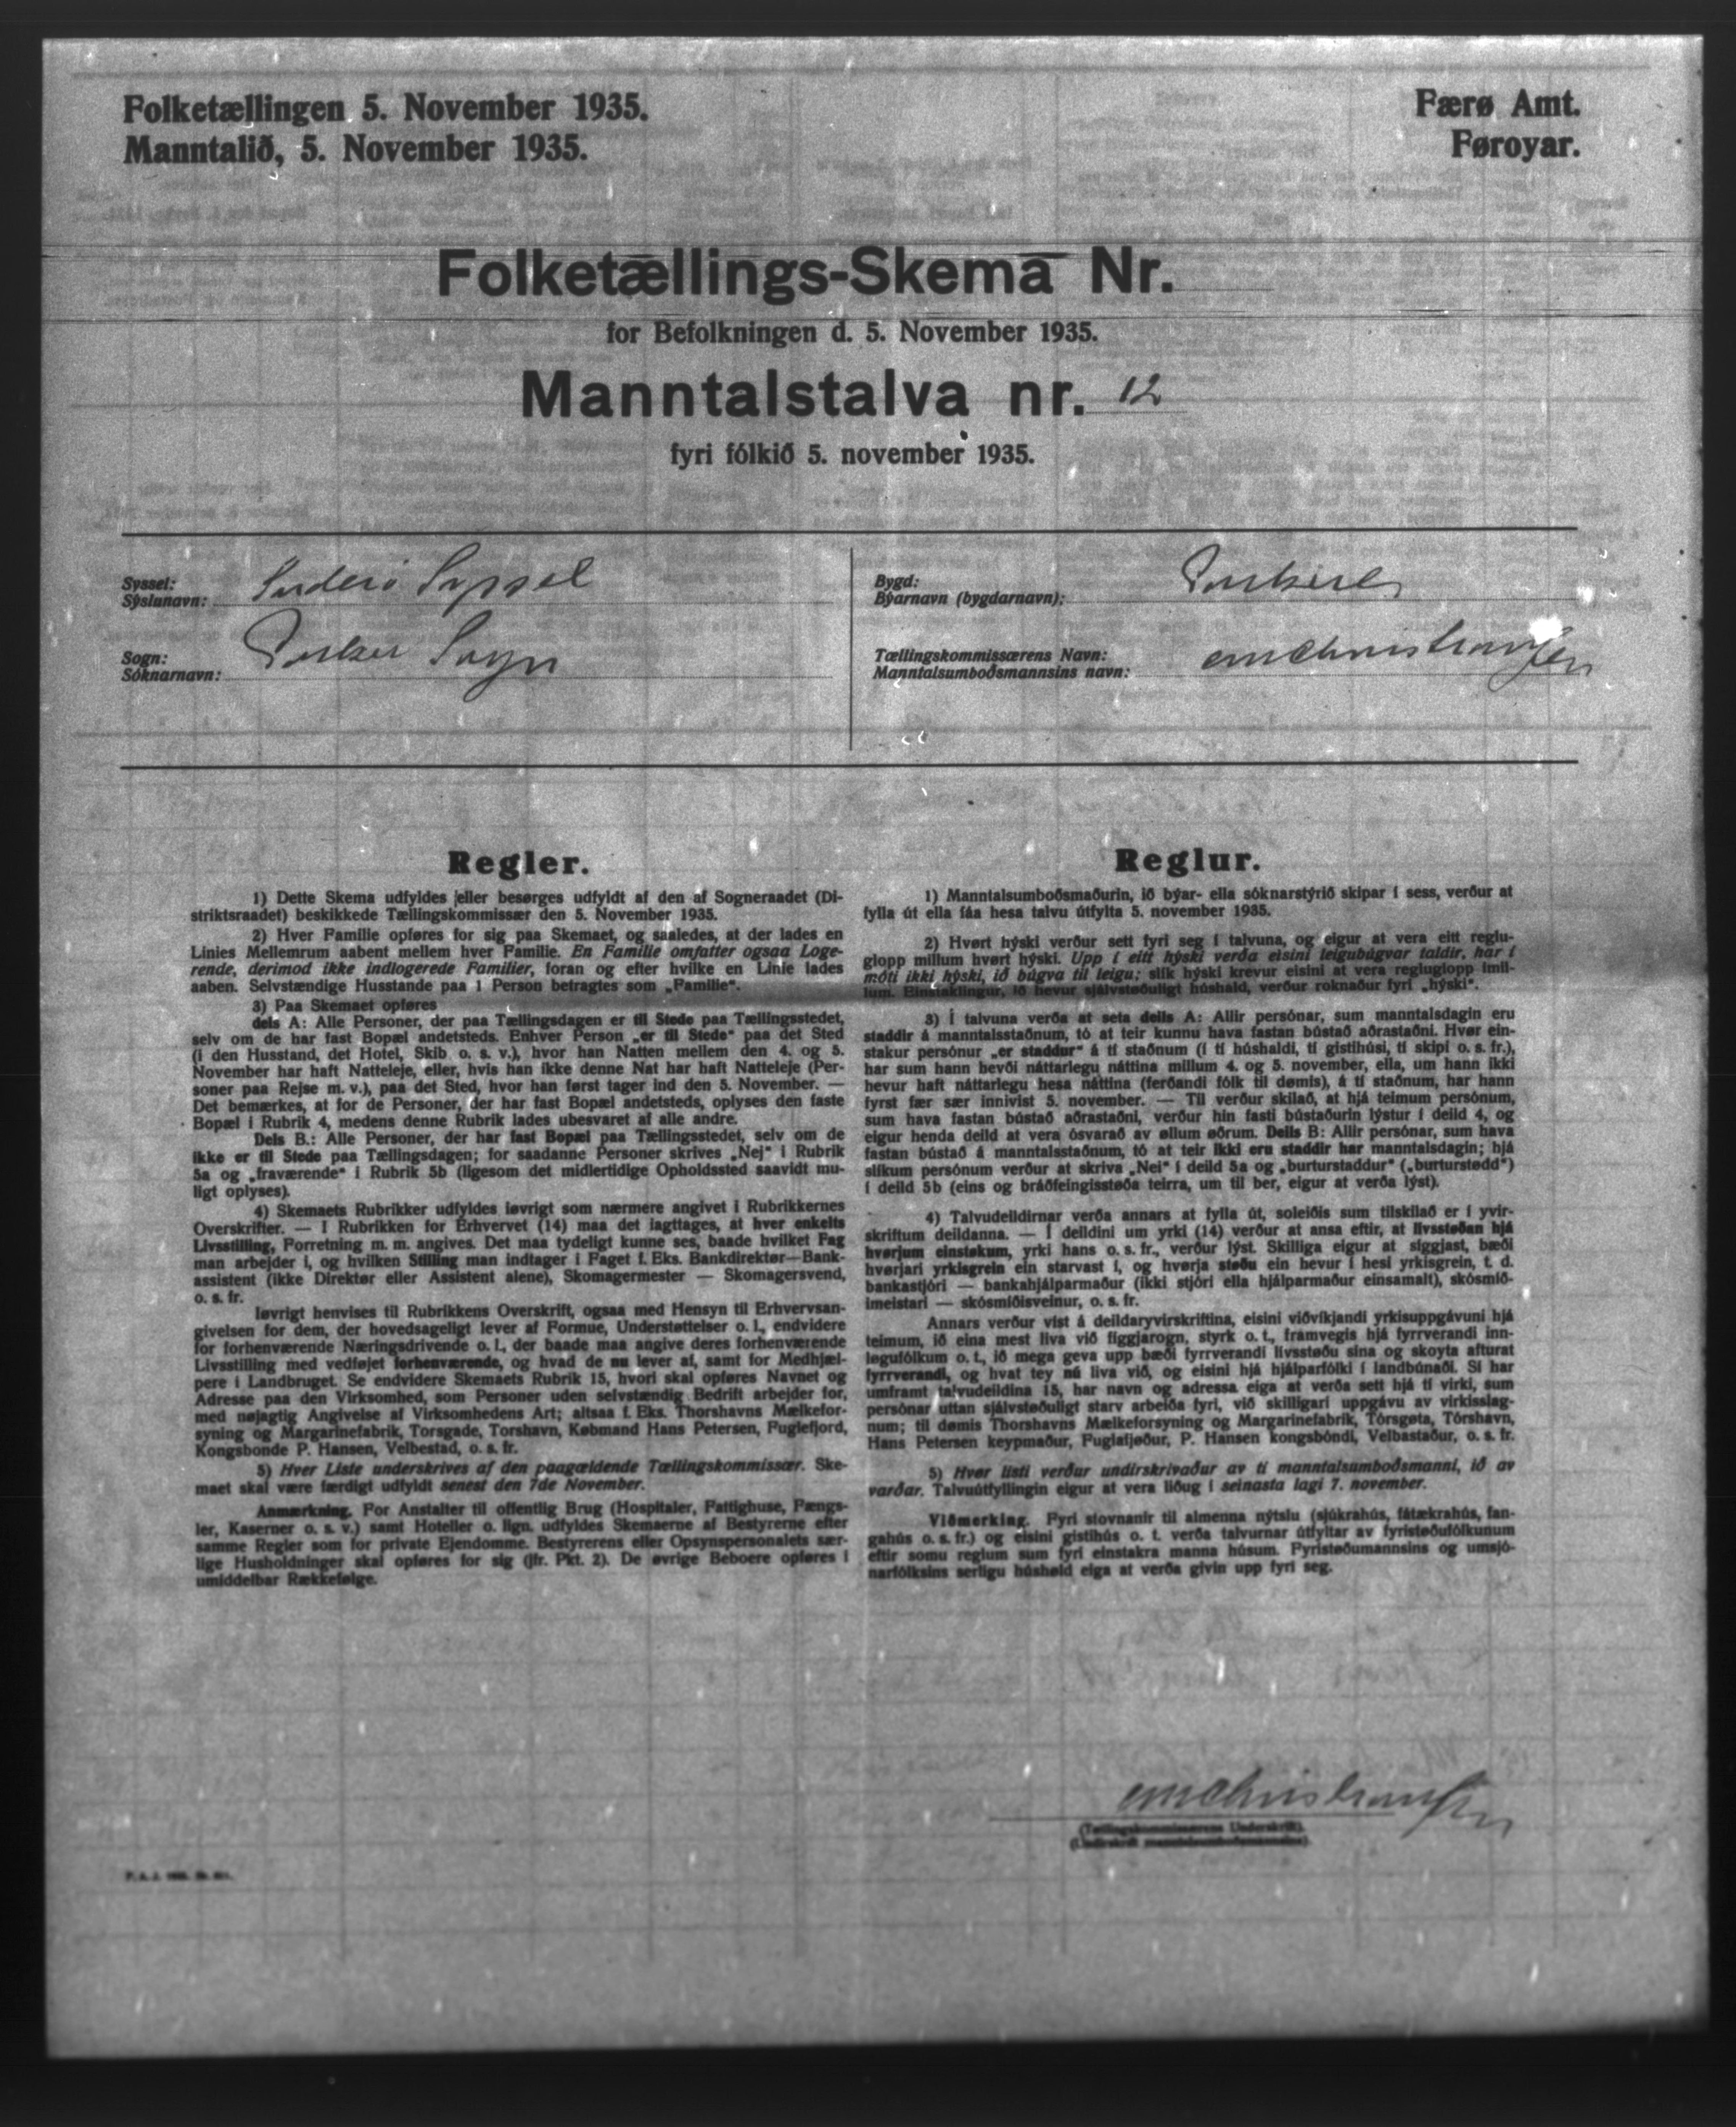 Folketællingen 5. November 1935.
Manntalið, 5. November 1935.
Færø Amt.
Føroyar.
Folketællings-Skema Nr.
for Befolkningen d. 5. November 1935.
Manntalstalva nr. 12
fyri fólkið 5. november 1935.
Syssel:
Sýslunavn: Suderø Syssel
Sogn:
Sóknarnavn: Sogn
Bygd:
Býarnavn (bygdarnavn):
Tællingskommissærens Navn:
Manntalsumboðsmannsins navn: Christiansen
Regler.
1) Dette Skema udfyldes eller besørges udfyldt af den af Sogneraadet (Di-
striktsraadet) beskikkede Tællingskommissær den 5. November 1935.
2) Hver Familie opføres for sig paa Skemaet, og saaledes, at der lades en
Linies Mellemrum aabent mellem hver Familie. En Familie omfatter ogsaa Loge-
rende, derimod ikke indlogerede Familier, foran og efter hvilke en Linie lades
aaben. Selvstændige Husstande paa 1 Person betragtes som „Familie“.
3) Paa Skemaet opføres
dels A: Alle Personer, der paa Tællingsdagen er til Stede paa Tællingsstedet,
selv om de har fast Bopæl andetsteds. Enhver Person „er til Stede“ paa det Sted
(i den Husstand, det Hotel, Skib o. s. v.), hvor han Natten mellem den 4. og 5.
November har haft Natteleje, eller, hvis han ikke denne Nat har haft Natteleje (Per-
soner paa Rejse m. v.), paa det Sted, hvor han først tager ind den 5. November. —
Det bemærkes, at for de Personer, der har fast Bopæl andetsteds, oplyses den faste
Bopæl i Rubrik 4, medens denne Rubrik lades ubesvaret af alle andre.
Dels B.: Alle Personer, der har fast Bopæl paa Tællingsstedet, selv om de
ikke er til Stede paa Tællingsdagen; for saadanne Personer skrives „Nej“ i Rubrik
5a og „fraværende“ i Rubrik 5b (ligesom det midlertidige Opholdssted saavidt mu-
ligt oplyses).
4) Skemaets Rubrikker udfyldes iøvrigt som nærmere angivet i Rubrikkernes
Overskrifter. — I Rubrikken for Erhvervet (14) maa det iagttages, at hver enkelts
Livsstilling, Forretning m. m. angives. Det maa tydeligt kunne ses, baade hvilket Fag
man arbejder i, og hvilken Stilling man indtager i Faget f. Eks. Bankdirektør—Bank-
assistent (ikke Direktør eller Assistent alene), Skomagermester — Skomagersvend,
o. s. fr.
Iøvrigt henvises til Rubrikkens Overskrift, ogsaa med Hensyn til Erhvervsan-
givelsen for dem, der hovedsageligt lever af Formue, Understøttelser o. l., endvidere
for forhenværende Næringsdrivende o. l., der baade maa angive deres forhenværende
Livsstilling med vedføjet forhenværende, og hvad de nu lever af, samt for Medhjæl-
pere i Landbruget. Se endvidere Skemaets Rubrik 15, hvori skal opføres Navnet og
Adresse paa den Virksomhed, som Personer uden selvstændig Bedrift arbejder for,
med nøjagtig Angivelse af Virksomhedens Art; altsaa f. Eks. Thorshavns Mælkefor-
syning og Margarinefabrik, Torsgade, Torshavn, Købmand Hans Petersen, Fuglefjord,
Kongsbonde P. Hansen, Velbestad, o. s. fr.
5) Hver Liste underskrives af den paagældende Tællingskommissær. Ske-
maet skal være færdigt udfyldt senest den 7de November.
Anmærkning. For Anstalter til offentlig Brug (Hospitaler, Fattighuse, Fængs-
ler, Kaserner o. s. v.) samt Hoteller o. lign. udfyldes Skemaerne af Bestyrerne efter
samme Regler som for private Ejendomme. Bestyrerens eller Opsynspersonalets sær-
lige Husholdninger skal opføres for sig (jfr. Pkt. 2). De øvrige Beboere opføres i
umiddelbar Rækkefølge.
Reglur.
1) Manntalsumboðsmaðurin, ið býar- ella sóknarstýrið skipar í sess, verður at
fylla út ella fáa hesa talvu útfylta 5. november 1935.
2) Hvørt hýski verður sett fyri seg í talvuna, og eigur at vera eitt reglu-
glopp millum hvørt hýski. Upp í eitt hýski verða eisini leigubúgvar taldir, har í
móti ikki hýski, ið búgva til leigu; slík hýski krevur eisini at vera regluglopp imil-
lum. Einstaklingur, ið hevur sjálvstøðuligt húshald, verður roknaður fyri „hýski“.
3) Í talvuna verða at seta dels A: Allir persónar, sum manntalsdagin eru
staddir á manntalsstaðnum, tó at teir kunnu hava fastan bústað aðrastaðni. Hvør ein-
stakur persónur „er staddur“ á tí staðnum (í tí húshaldi, tí gistihúsi, tí skipi o. s. fr.),
har sum hann bevði náttarlegu náttina millum 4. og 5. november, ella, um hann ikki
hevur haft náttarlegu hesa náttina (ferðandi fólk til dømis), á tí staðnum, har hann
fyrst fær sær innivist 5. november. — Til verður skilað, at hjá teimum persónum,
sum hava fastan bústað aðrastaðni, verður hin fasti bústaðurin lýstur í deild 4, og
eigur henda deild at vera ósvarað av øllum øðrum. Dells B: Allir persónar, sum hava
fastan bústað á manntalsstaðnum, tó at teir ikki eru staddir har manntalsdagin; hjá
slíkum persónum verður at skriva „Nei“ í deild 5a og „burturstaddur“ („burturstødd“)
í deild 5b (eins og bráðfeingisstøða teirra, um til ber, eigur at verða lýst).
4) Talvudeildirnar verða annars at fylla út, soleiðis sum tilskilað er í yvir-
skriftum deildanna. — Í deildini um yrki (14) verður at ansa eftir, at livsstøðan hjá
hvørjum einstøkum, yrki hans o. s. fr., verður lýst. Skilliga eigur at síggjast, bæði
hvørjari yrkisgrein ein starvast í, og hvørja støðu ein hevur í hesi yrkisgrein, t. d.
bankastjóri — bankahjálparmaður (ikki stjóri ella hjálparmaður einsamalt), skósmið-
imeistari — skósmiðisveinur, o. s. fr.
Annars verður víst á deildaryvirskriftina, eisini viðvíkjandi yrkisuppgávuni hjá
teimum, ið eina mest liva við figgjarogn, styrk o. t., framvegis hjá fyrrverandi inn-
løgufólkum o. t., ið mega geva upp bæði fyrrverandi livsstøðu sina og skoyta afturat
fyrrverandi, og hvat tey nú liva við, og eisini hjá hjálparfólki í landbúnaði. Sí har
umframt talvudeildina 15, har navn og adressa eiga at verða sett hjá tí virki, sum
persónar uttan sjálvstøðuligt starv arbeiða fyri, við skilligari uppgávu av virkisslag-
num; til dømis Thorshavns Mælkeforsyning og Margarinefabrik, Tórsgøta, Tórshavn,
Hans Petersen keypmaður, Fuglafjøður, P. Hansen kongsbóndi, Velbastaður, o. s. fr.
5) Hvør listi verður undirskrivaður av tí manntalsumboðsmanni, ið av
varðar. Talvuútfyllingin eigur at vera liðug í seinasta lagi 7. november.
Viðmerking. Fyri stovnanir til almenna nýtslu (sjúkrahús, fátækrahús, fan-
gahús o. s. fr.) og eisini gistihús o. t. verða talvurnar útfyltar av fyristøðufólkunum
eftir somu reglum sum fyri einstakra manna húsum. Fyristøðumannsins og umsjó-
narfólksins serligu húshøld eiga at verða givin upp fyri seg.
Christiansen
(Tællingskommissærens Underskrift).